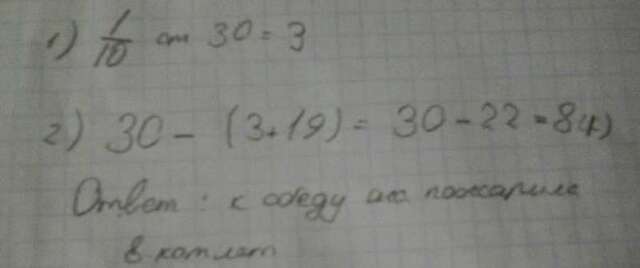 1) 1/10 от 30 = 3
2) 30 - (3+19) = 30 - 22 = 8 (к)
Ответ: к обеду пожарила
8 котлет